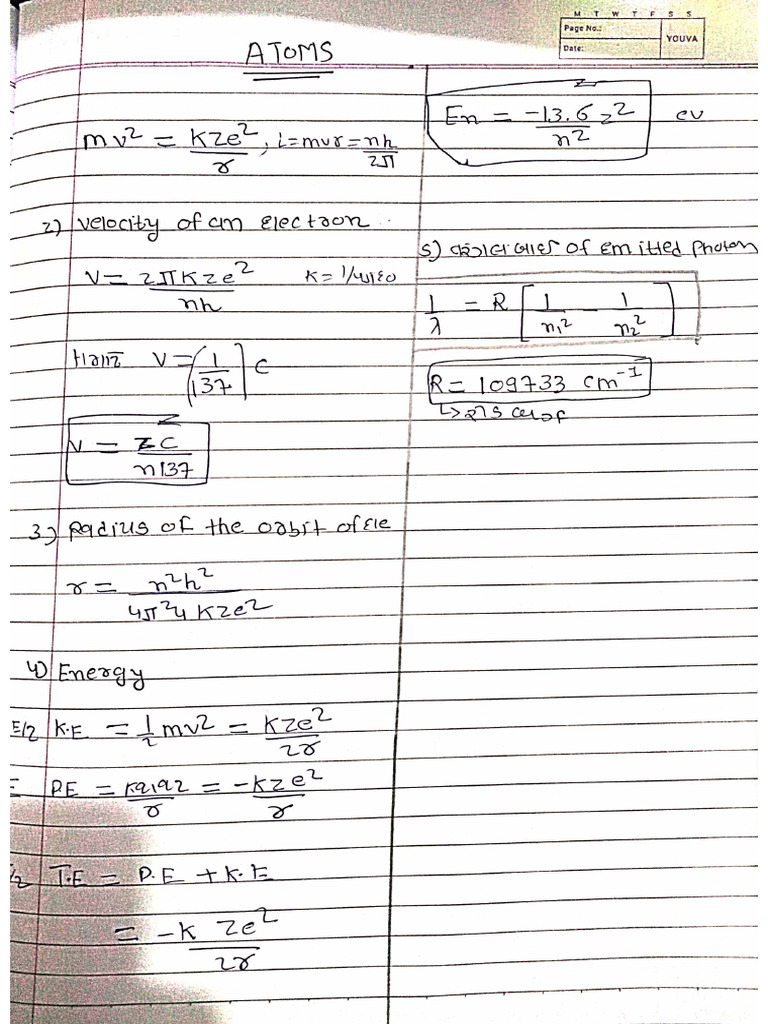 M T W T F S S
Page No.:
Date:
YOUVA
ATOMS
mv² = kze²/r , L=mvr= nh/2π
2) velocity of an electron
V = 2πkze²/nh K = 1/4πε0
V = (1/137) C
v = zC/n137
3) Radius of the orbit of ele
r = n²h²/4π²4 kze²
4) Energy
E/2 K.E = 1/2 mv² = kze²/2r
P.E = kq1q2/r = -kze²/r
T.E = P.E + K.E
= -k ze²/2r
En = -13.6 z²/n² ev
5) of emitted photon
1/λ = R [1/n1² - 1/n2²]
R = 109733 cm⁻¹